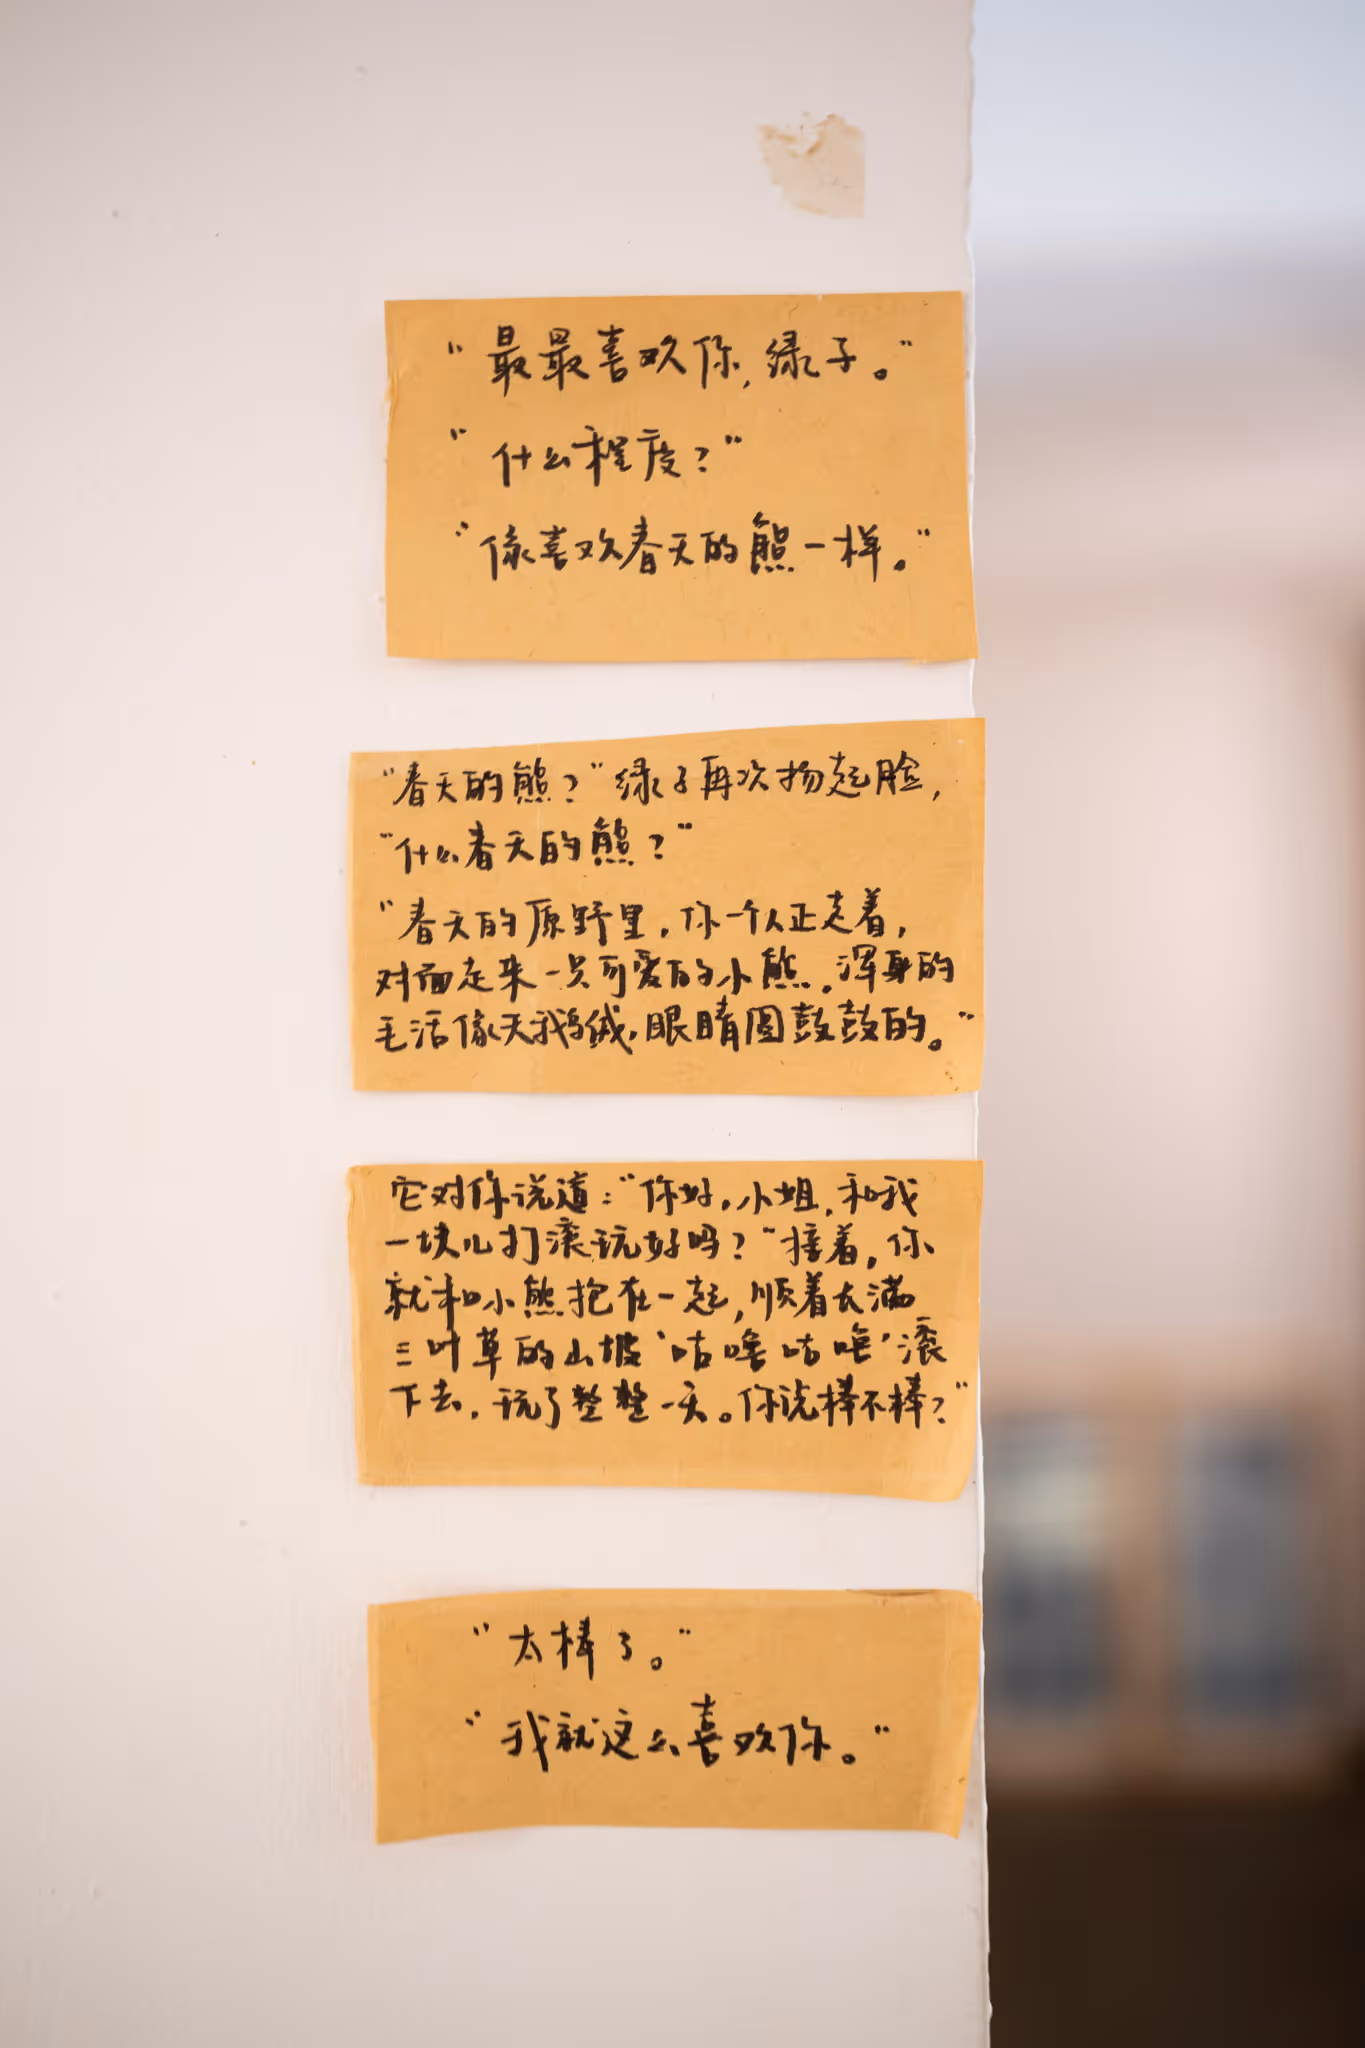 “最最喜欢你，绿子。”
“什么程度？”
“像喜欢春天的熊一样。”
“春天的熊？”绿子再次扬起脸，
“什么春天的熊？”
“春天的原野里，你一个人正走着，
对面走来一只可爱的小熊，浑身的
毛活像天鹅绒，眼睛圆鼓鼓的。”
它对你说道：“你好，小姐，和我
一块儿打滚玩好吗？”接着，你
就和小熊抱在一起，顺着长满
三叶草的山坡‘咕噜咕噜’滚
下去，玩了整整一天。你说棒不棒？”
“太棒了。”
“我就这么喜欢你。”